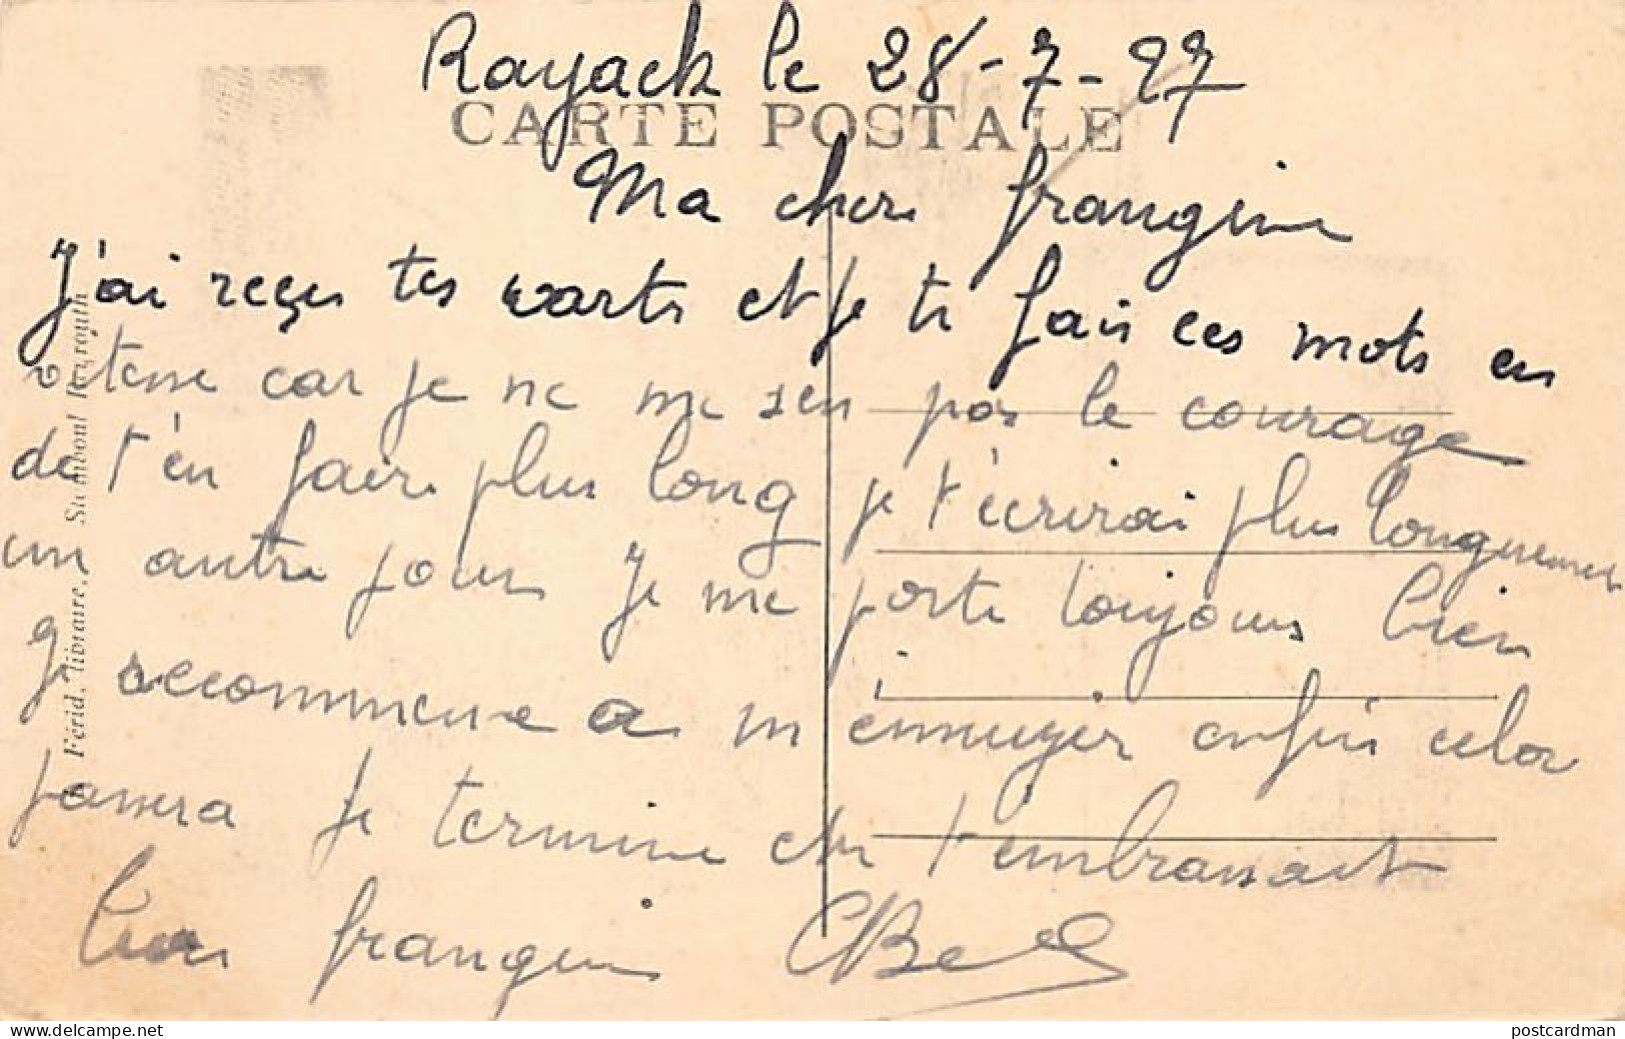 Rayack le 28-7-27
CARTE POSTALE
Ma cher frangine
J'ai reçu tes carts et je te fais ces mots en
vitesse car je ne me sen pas le courage
de t'en faire plus long je t'écrirai plus longuement
un autre jour Je me porte toujours bien
je recommence a m'ennuyer enfin cela
passera je termine en t'embrassant
ton frangin CBel
Férid, libraire, Stamboul Beyrouth
postcards.delcampe.net
postcardman